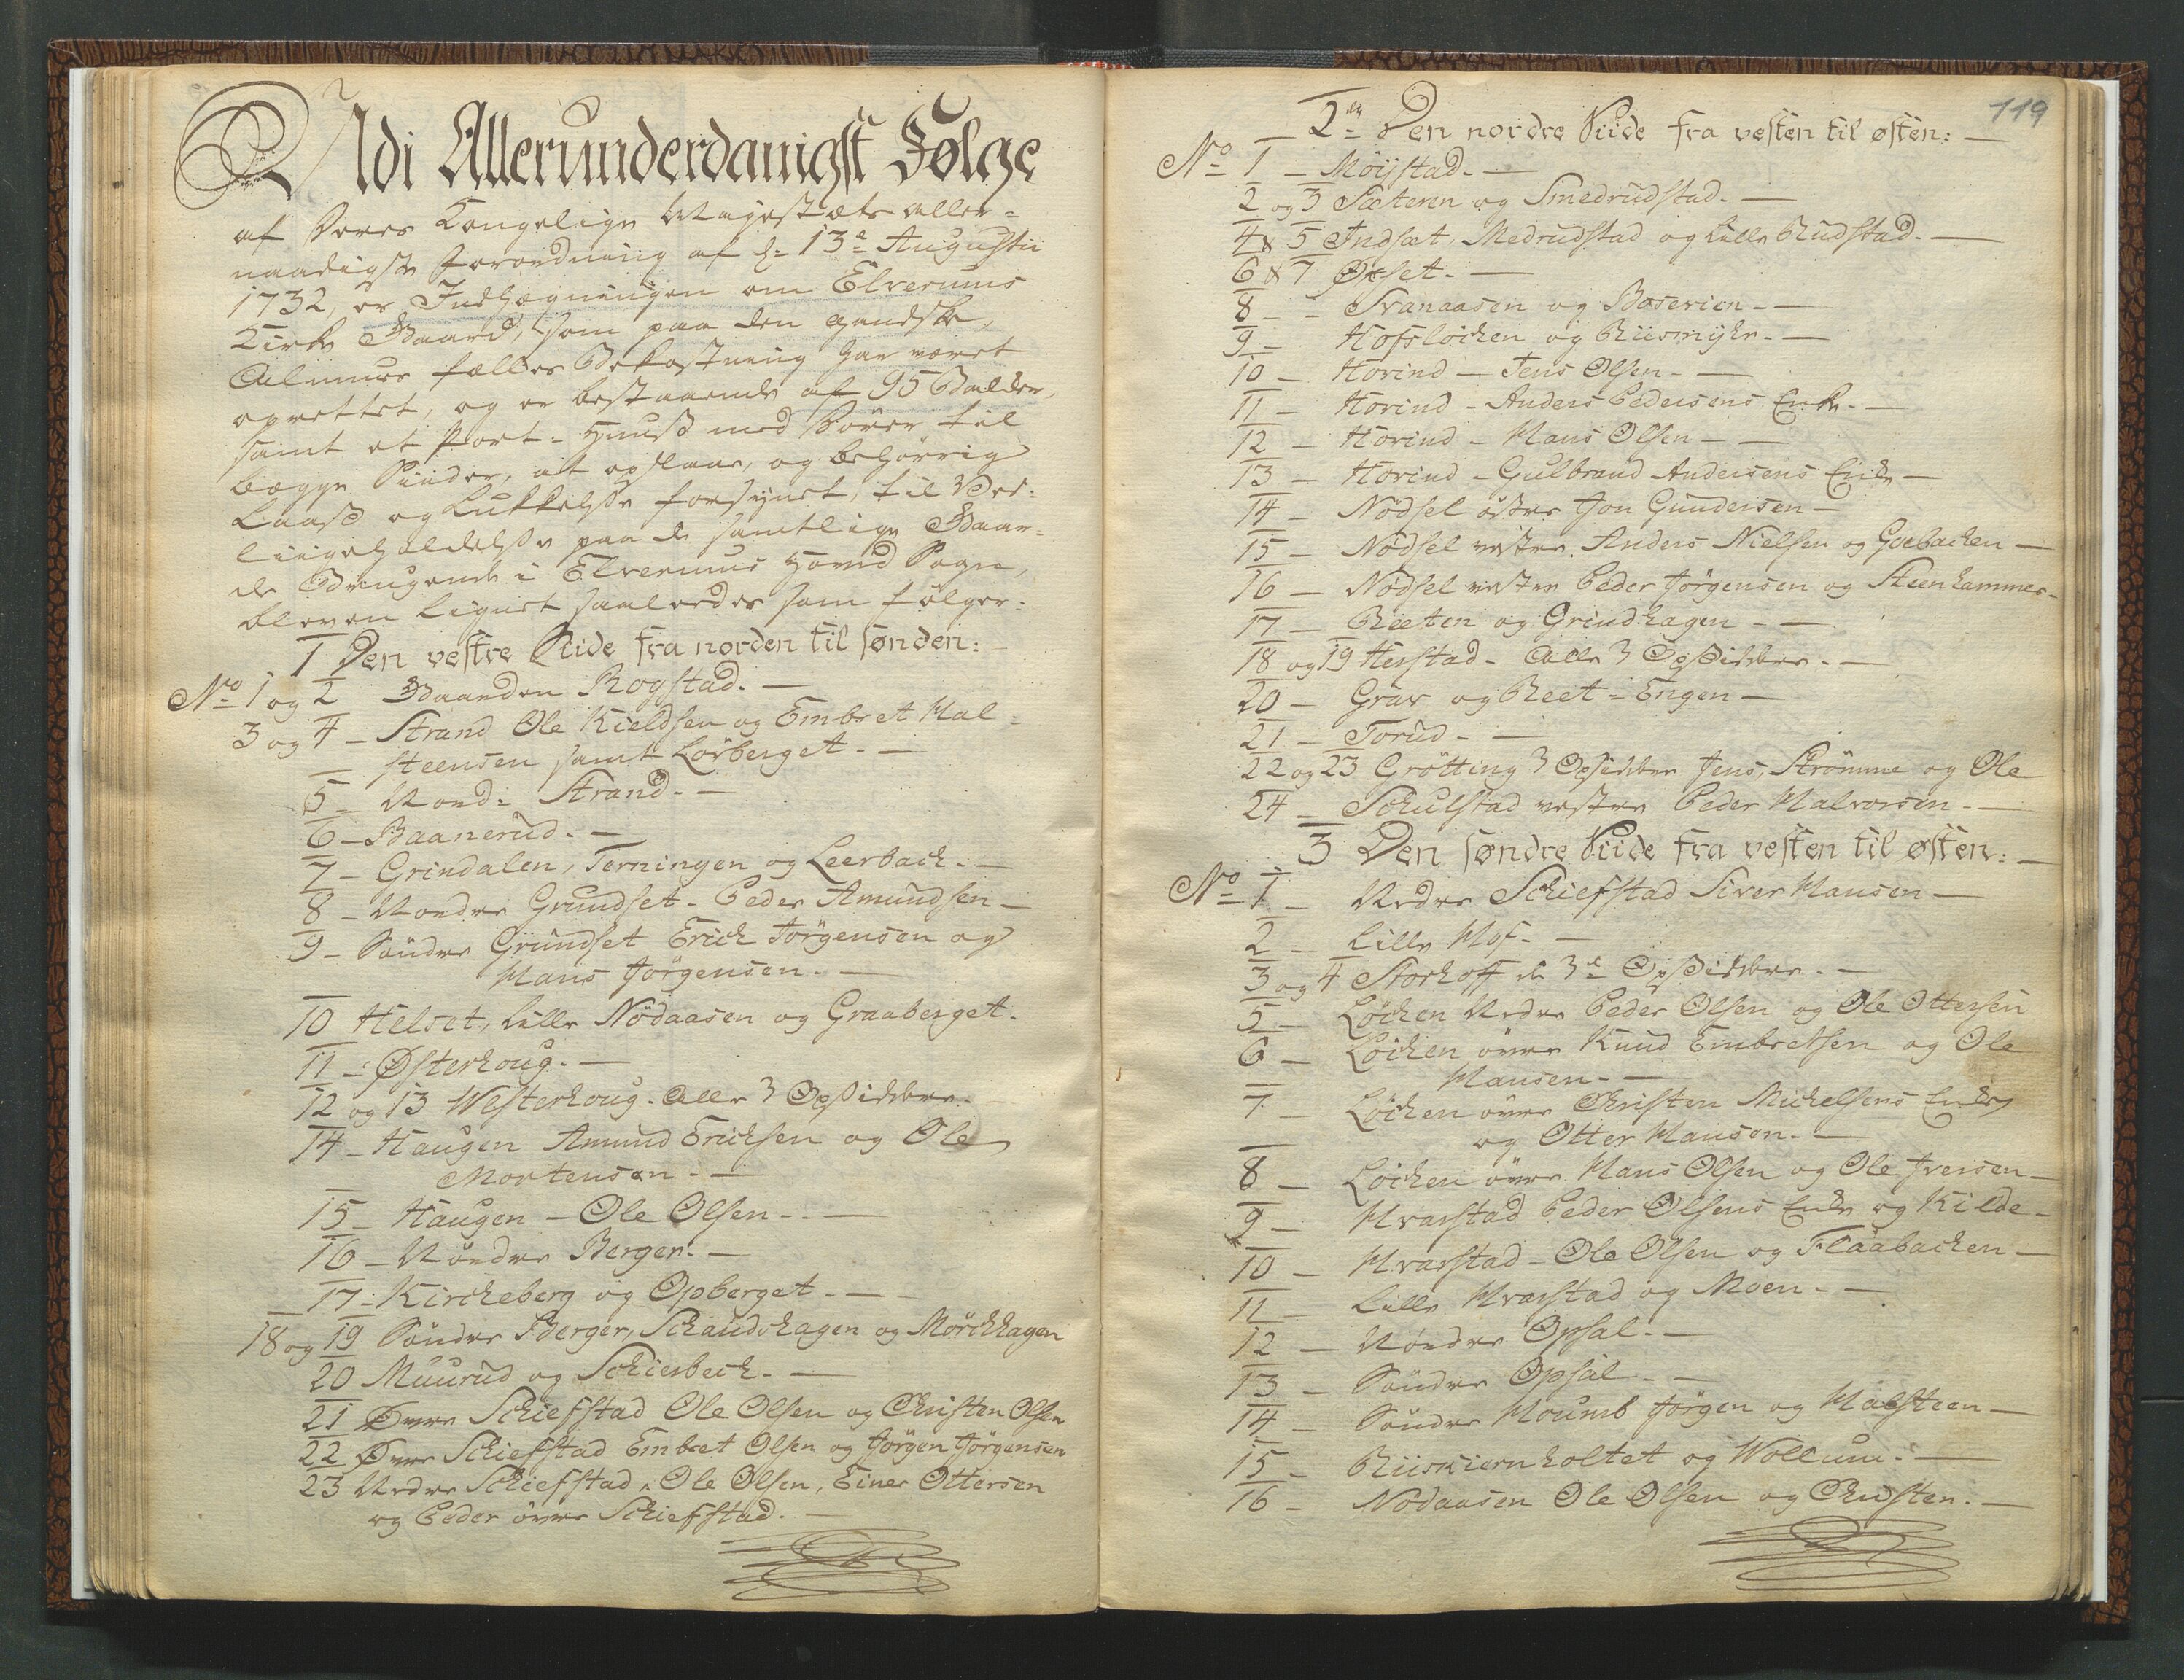 Udi Allerunderdanigst Følge
af Deres Kongelige Majestæts aller=
naadigste Forordning af d: 13de Augustii
1732, er Indhægningen om Elverums
Kirke Gaard, som paa den gandske
Almues fælles Bekostning har været
oprettet, og er bestaaende af 95 Balder,
samt et Port=Huuß med Dörer til
begge Siider, alt opslaae, og behørig
Laaß og Lukkelße forsynet, til Ved=
ligeholdelße paa de samtlige Gaar=
de Brugende i Elverums Hoved Sogn,
bleven lignet saaledes som følger:
1 Den vestre Siide fra norden til sønden:
No 1 og 2 Gaarden Rogstad.
3 og 4 - Strand Ole Kieldsen og Embret Hal=
steensen samt Lövberget.
5 - Nord= Strand.
6 - Baanerud.
7 - Grindalen, Terningen og Leerbach.
8 - Nordre Grundset - Peder Amundsen
9 - Söndre Grundset Erich Jörgensen og
Hans Jörgensen.
10 Helset, Lille Nödaasen og Graaberget.
11 - Østerhoug.
12 og 13 Westerhoug. Alle 3 Opsiddere.
14 - Haugen Amund Erichsen og Ole
Mortensen.
15 - Haugen - Ole Olsen
16 - Nördre Berger.
17 - Kircheberg og Opberget.
18 og 19 Söndre Berger, Schandshagen og Mörchhagen
20 Muurud og Schierbech.
21 Övre Schiefstad Ole Olsen og Christen Olsen
22 Övre Schiefstad Embret Olsen og Jörgen Jörgensen
23 Nedre Schiefstad, Ole Olsen, Einer Ottersen
og Peder övre Schiefstad.
119
2en Den nordre Siide fra vesten til østen:
No 1 - Möystad.
2 og 3 Sæteren og Smedrudstad.
4 & 5 Indsæt, Medrudstad og Lille Rudstad.
6 & 7 Øxset.
8 - Svanaasen og Baserien
9 - Hofslöchen og Riismyhr.
10 - Horind - Jens Olsen
11 - Horind - Anders Pedersens Enke.
12 - Horind - Hans Olsen
13 - Horind - Gulbrand Andersens Enke
14 - Nödsel östre Jon Gundersen
15 - Nödsel vestre. Anders Nielsen og Goebachen
16 - Nödsel vestre Peder Jörgensen og Steenhammer
17 - Reeten og Grindhagen
18 og 19 Herstad. Alle 3 Opsiddere.
20 - Grav og Reet=Engen
21 - Torud
22 og 23 Grötting 3 Opsiddere Jens, Strömme og Ole
24 - Schulstad vestre Peder Halvorsen.
3 Den søndre Siide fra vesten til østen:
No 1 - Nedre Schiefstad Siver Hansen
2 - Lille Hof.
3 og 4 Storhoff de 3de Opsiddere.
5 - Löchen Nedre Peder Olsen og Ole Ottersen
6 - Löchen övre Knud Embretsen og Ole
Hansen.
7 - Löchen övre Christen Michelsens Enke
og Otter Hansen.
8 - Löchen övre Hans Olsen og Ole Iversen
9 - Hvarstad Peder Olsens Enke og Kilde
10 - Hvarstad - Ole Olsen og Flaabachen
11 - Lille Hvarstad og Moen.
12 - Nördre Opsal.
13 - Söndre Opsal
14 - Söndre Houmb Jörgen og Halsteen
15 - Riiskiernholtet og Wollum.
16 - Nödaasen Ole Olsen og Christen.